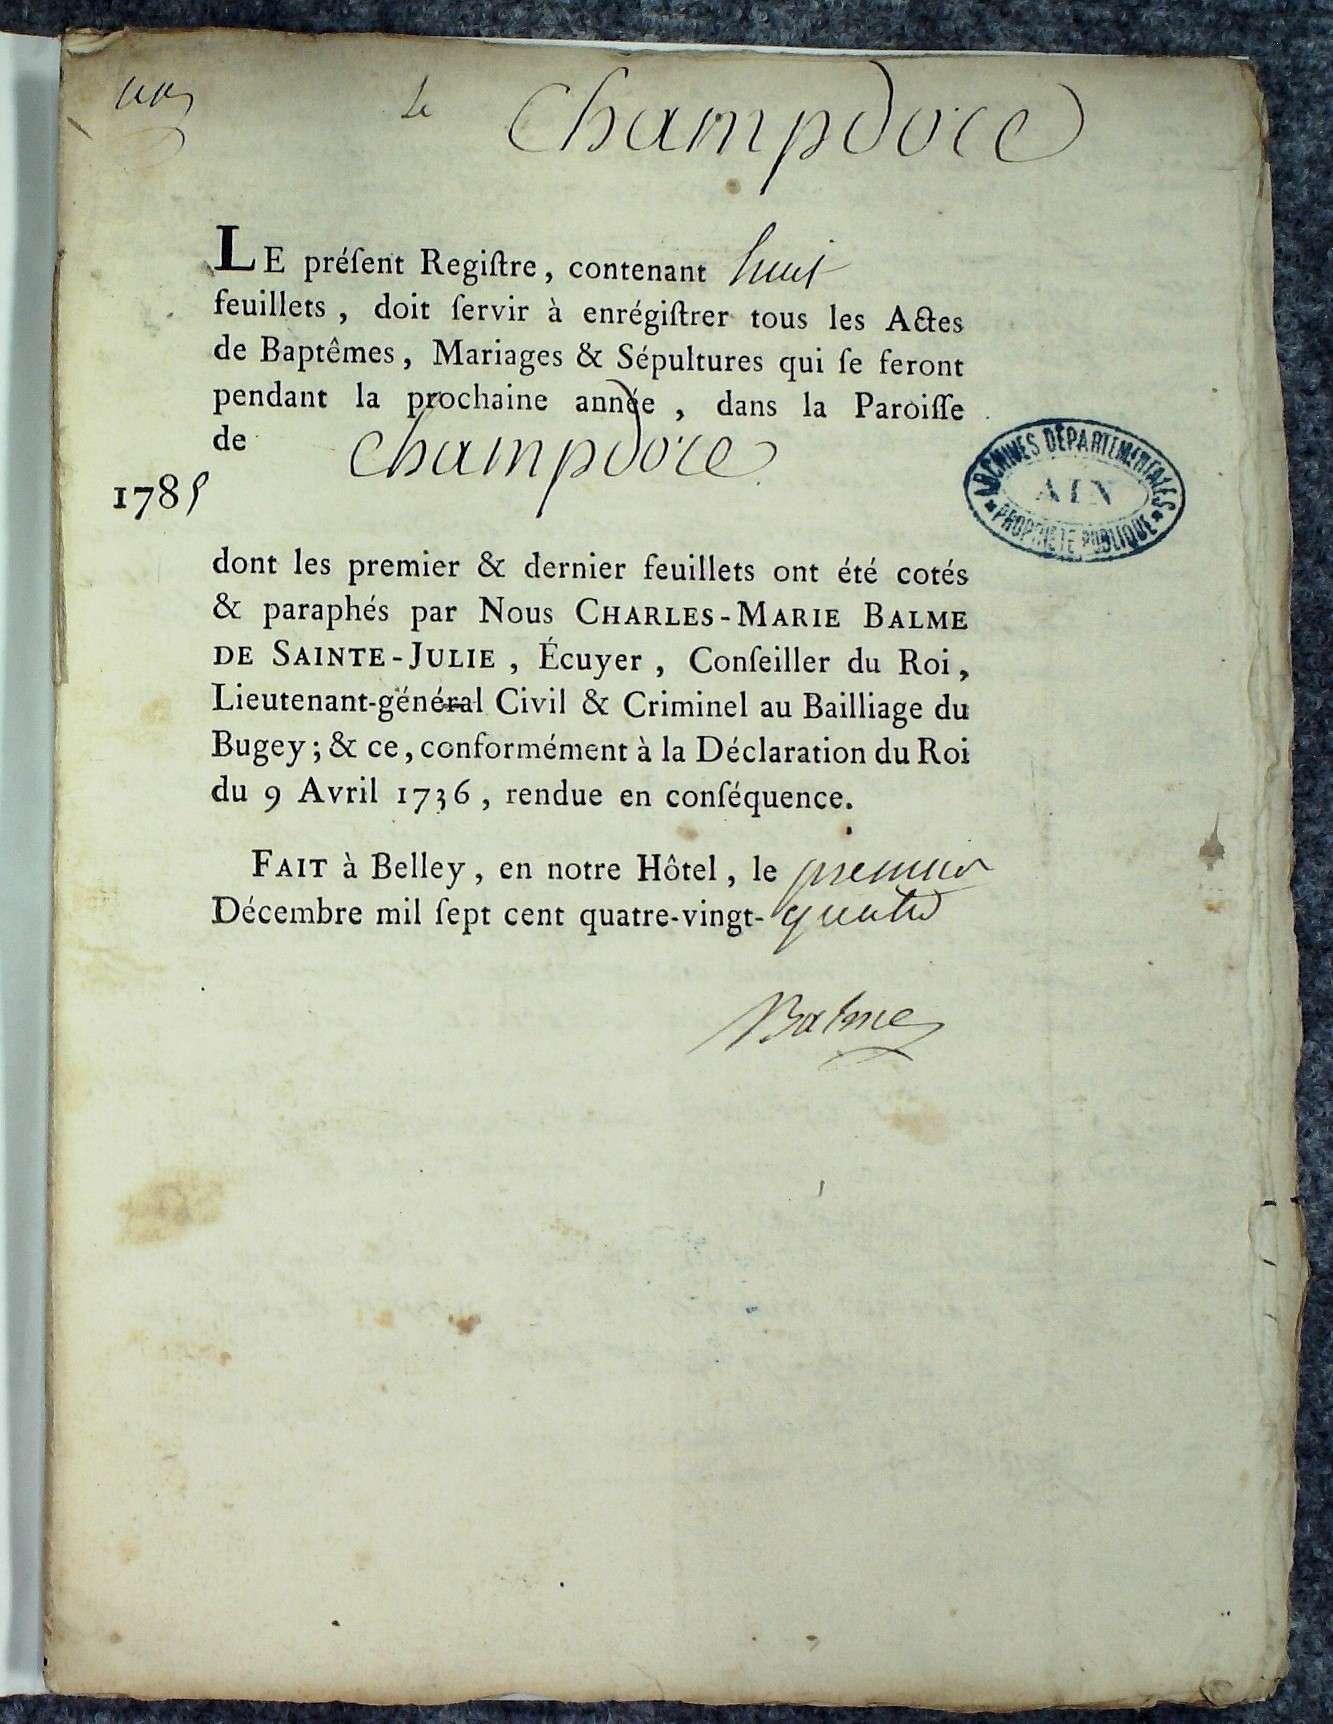 Champdore
LE préſent Regiſtre, contenant huit
feuillets, doit ſervir à enrégiſtrer tous les Actes
de Baptêmes, Mariages & Sépultures qui ſe feront
pendant la prochaine année, dans la Paroiſſe
de Champdore
1785
ARCHIVES DÉPARTEMENTALES
AIN
* PROPRIÉTÉ PUBLIQUE *
dont les premier & dernier feuillets ont été cotés
& paraphés par Nous CHARLES-MARIE BALME
DE SAINTE-JULIE, Écuyer, Conſeiller du Roi,
Lieutenant-général Civil & Criminel au Bailliage du
Bugey; & ce, conformément à la Déclaration du Roi
du 9 Avril 1736, rendue en conſéquence.
FAIT à Belley, en notre Hôtel, le premier
Décembre mil ſept cent quatre-vingt-quatre
Balme